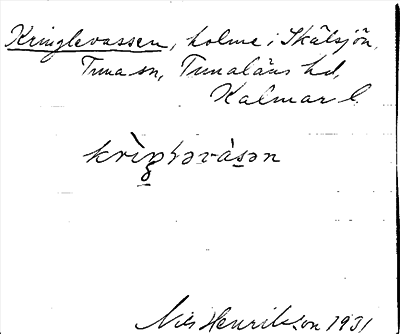 Kringlevassen, holme i Skälsjön,
Tuna sn, Tunaläns hd,
Kalmar l.
Nils Henrikson 1931